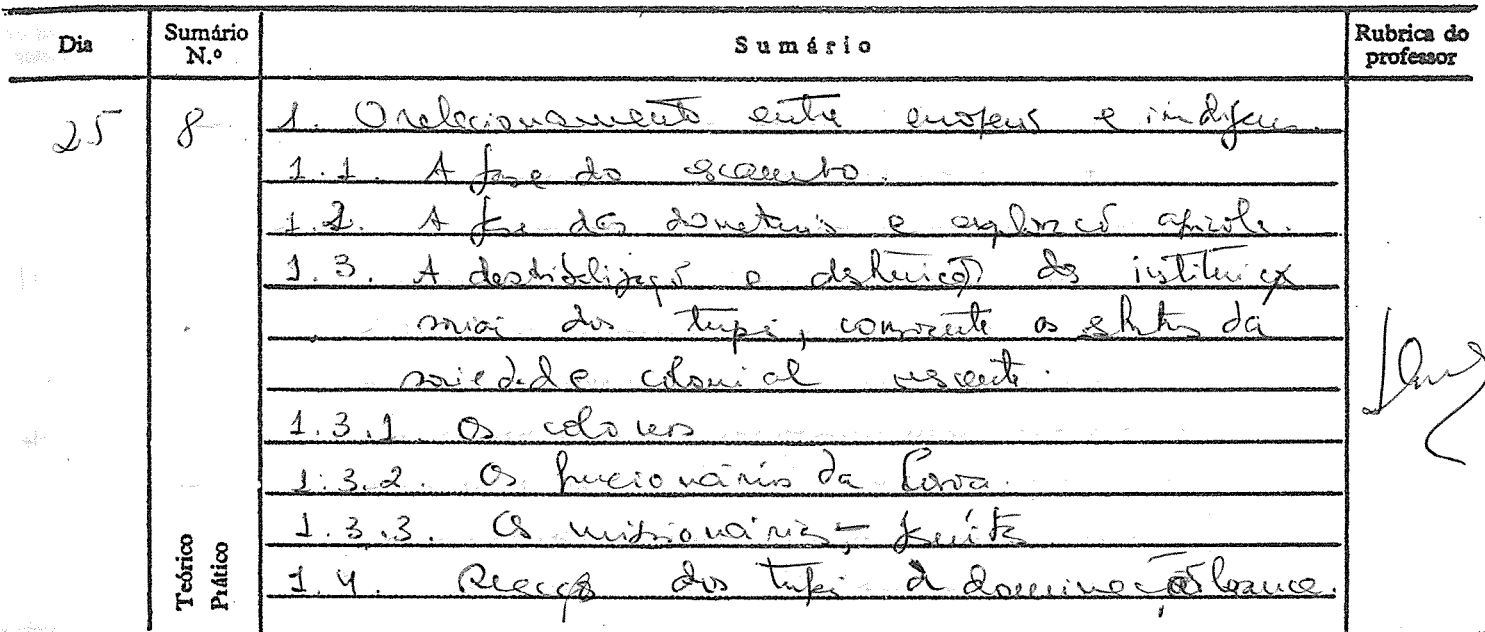 Dia
Sumário N.º
Sumário
Rubrica do professor
25
8
1. O relacionamento entre europeus e indígenas.
1.1. A fase do escambo.
1.2. A fase das donatarias e exploração agrícola.
1.3. A destribalização e destruição das instituições
sociais dos tupi, consoante os da
sociedade colonial nascente.
1.3.1 Os colonos
1.3.2. Os funcionários da Coroa.
1.3.3. Os missionários – jesuítas
1.4. Reacção dos tupi à dominação branca.
Teórico
Prático